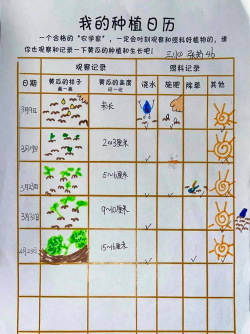 我的种植日历
一个合格的“农学家”，一定会时刻观察和照料好植物的，请
你也观察和记录一下黄瓜的种植和生长吧！
观察记录 照料记录
日期 黄瓜的样子 黄瓜的高度 浇水 施肥 除草 其他
画一画 记一记
3月9日
2~3厘米
3月23日 5~6厘米
3月31日 9~10厘米
15~16厘米